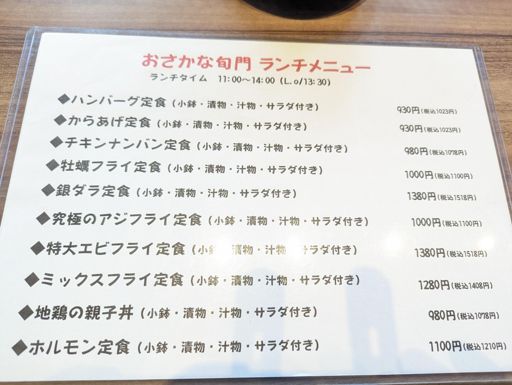 おさかな旬門 ランチメニュー
ランチタイム 11:00〜14:00 (L.o/13:30)
◆ハンバーグ定食(小鉢・漬物・汁物・サラダ付き) 930円(税込1023円)
◆からあげ定食(小鉢・漬物・汁物・サラダ付き) 930円(税込1023円)
◆チキンナンバン定食(小鉢・漬物・汁物・サラダ付き) 980円(税込1078円)
◆牡蠣フライ定食(小鉢・漬物・汁物・サラダ付き) 1000円(税込1100円)
◆銀ダラ定食(小鉢・漬物・汁物・サラダ付き) 1380円(税込1518円)
◆究極のアジフライ定食(小鉢・漬物・汁物・サラダ付き) 1000円(税込1100円)
◆特大エビフライ定食(小鉢・漬物・汁物・サラダ付き) 1380円(税込1518円)
◆ミックスフライ定食(小鉢・漬物・汁物・サラダ付き) 1280円(税込1408円)
◆地鶏の親子丼(小鉢・漬物・汁物・サラダ付き) 980円(税込1078円)
◆ホルモン定食(小鉢・漬物・汁物・サラダ付き) 1100円(税込1210円)